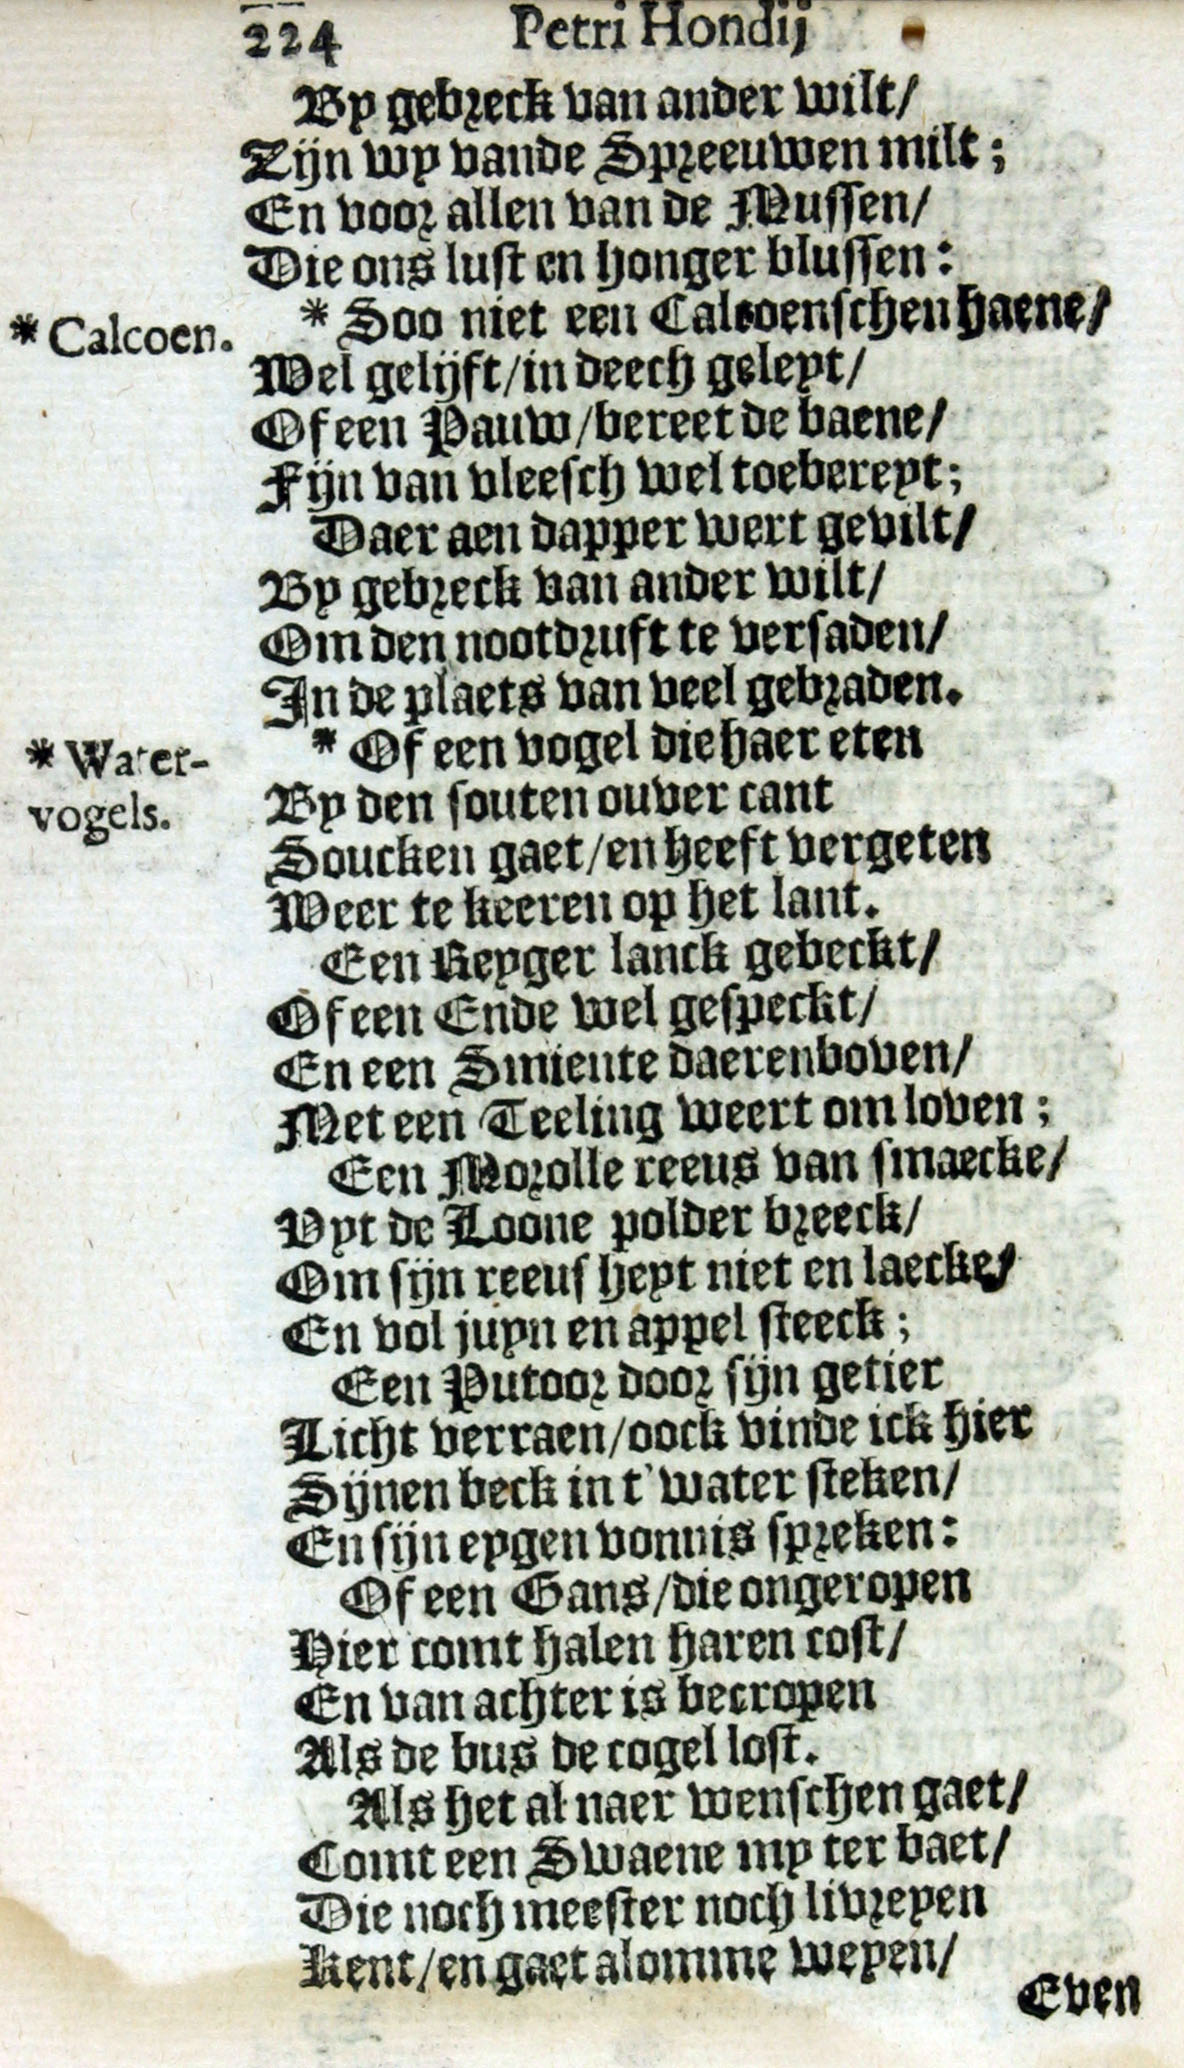 224 Petri Hondij
By gebreck van ander wilt/
Zijn wy vande Spreeuwen milt;
En voor allen van de Mussen/
Die ons lust en honger blussen:
* Calcoen.
* Soo niet een Calcoenschen haene/
Wel gelijft/in deech geleyt/
Of een Pauw/bereet de baene/
Fijn van vleesch wel toebereyt;
Daer aen dapper wert gevilt/
By gebreck van ander wilt/
Om den nootdruft te versaden/
In de plaets van veel gebraden.
* Water-
vogels.
* Of een vogel die haer eten
By den souten ouver cant
Soucken gaet/en heeft vergeten
Weer te keeren op het lant.
Een Reyger lanck gebeckt/
Of een Ende wel gespeckt/
En een Smiente daerenboven/
Met een Teeling weert om loven;
Een Morolle reeus van smaecke/
Uyt de Loone polder breeck/
Om sijn reeus heyt niet en laecke/
En vol juyn en appel steeck;
Een Putoor door sijn getier
Licht verraen/oock vinde ick hier
Sijnen beck in t' water steken/
En sijn eygen vonnis spreken:
Of een Gans/die ongeropen
Hier comt halen haren cost/
En van achter is becropen
Als de bus de cogel lost.
Als het al naer wenschen gaet/
Comt een Swaene my ter baet/
Die noch meester noch livreyen
Kent/en gaet alomme weyen/
Even